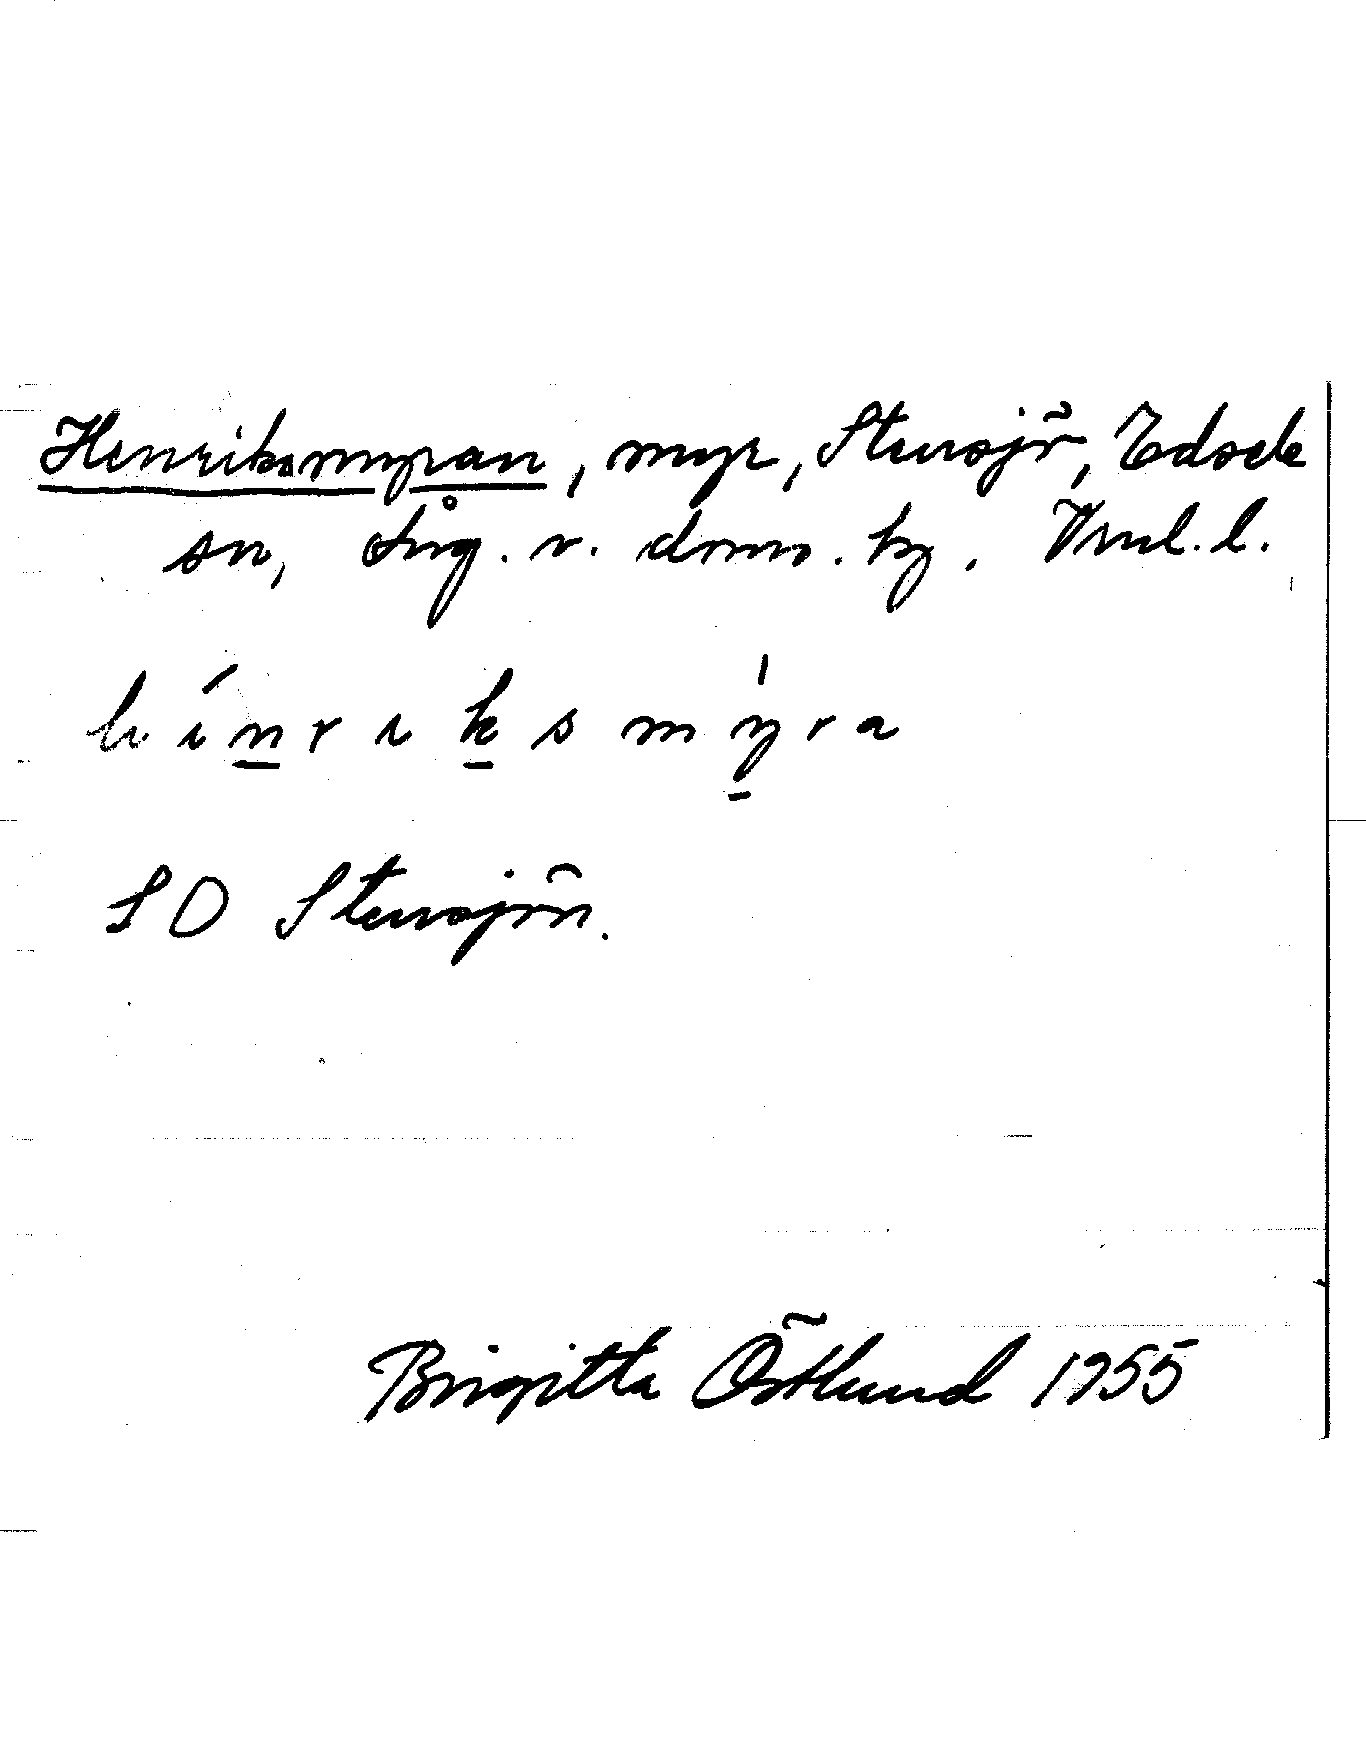 Henriksmyran, myr, Stensjö, Edsele
sn, Ång. v. dms. tg. Vnl. l.
hínriksmy̍ra
SO Stensjön.
Birgitta Östlund 1955